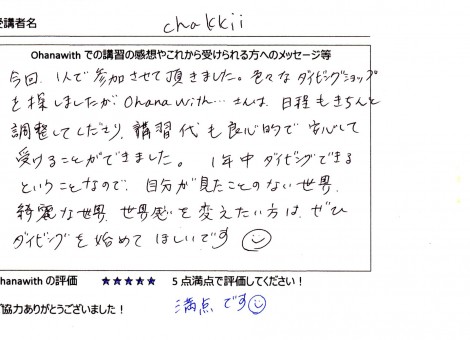 受講者名 chakkii
Ohanawith での講習の感想やこれから受けられる方へのメッセージ等
今回、1人で参加させて頂きました。色々なダイビングショップ
を探しましたが Ohana With… さんは、日程もきちんと
調整してくださり、講習代も良心的で安心して
受けることができました。 1年中ダイビングできる
ということなので、自分が見たことのない世界、
綺麗な世界、世界感を変えたい方は、ぜひ
ダイビングを始めてほしいです
Ohanawith の評価 ★★★★★ 5点満点で評価してください!
ご協力ありがとうございました! 満点です